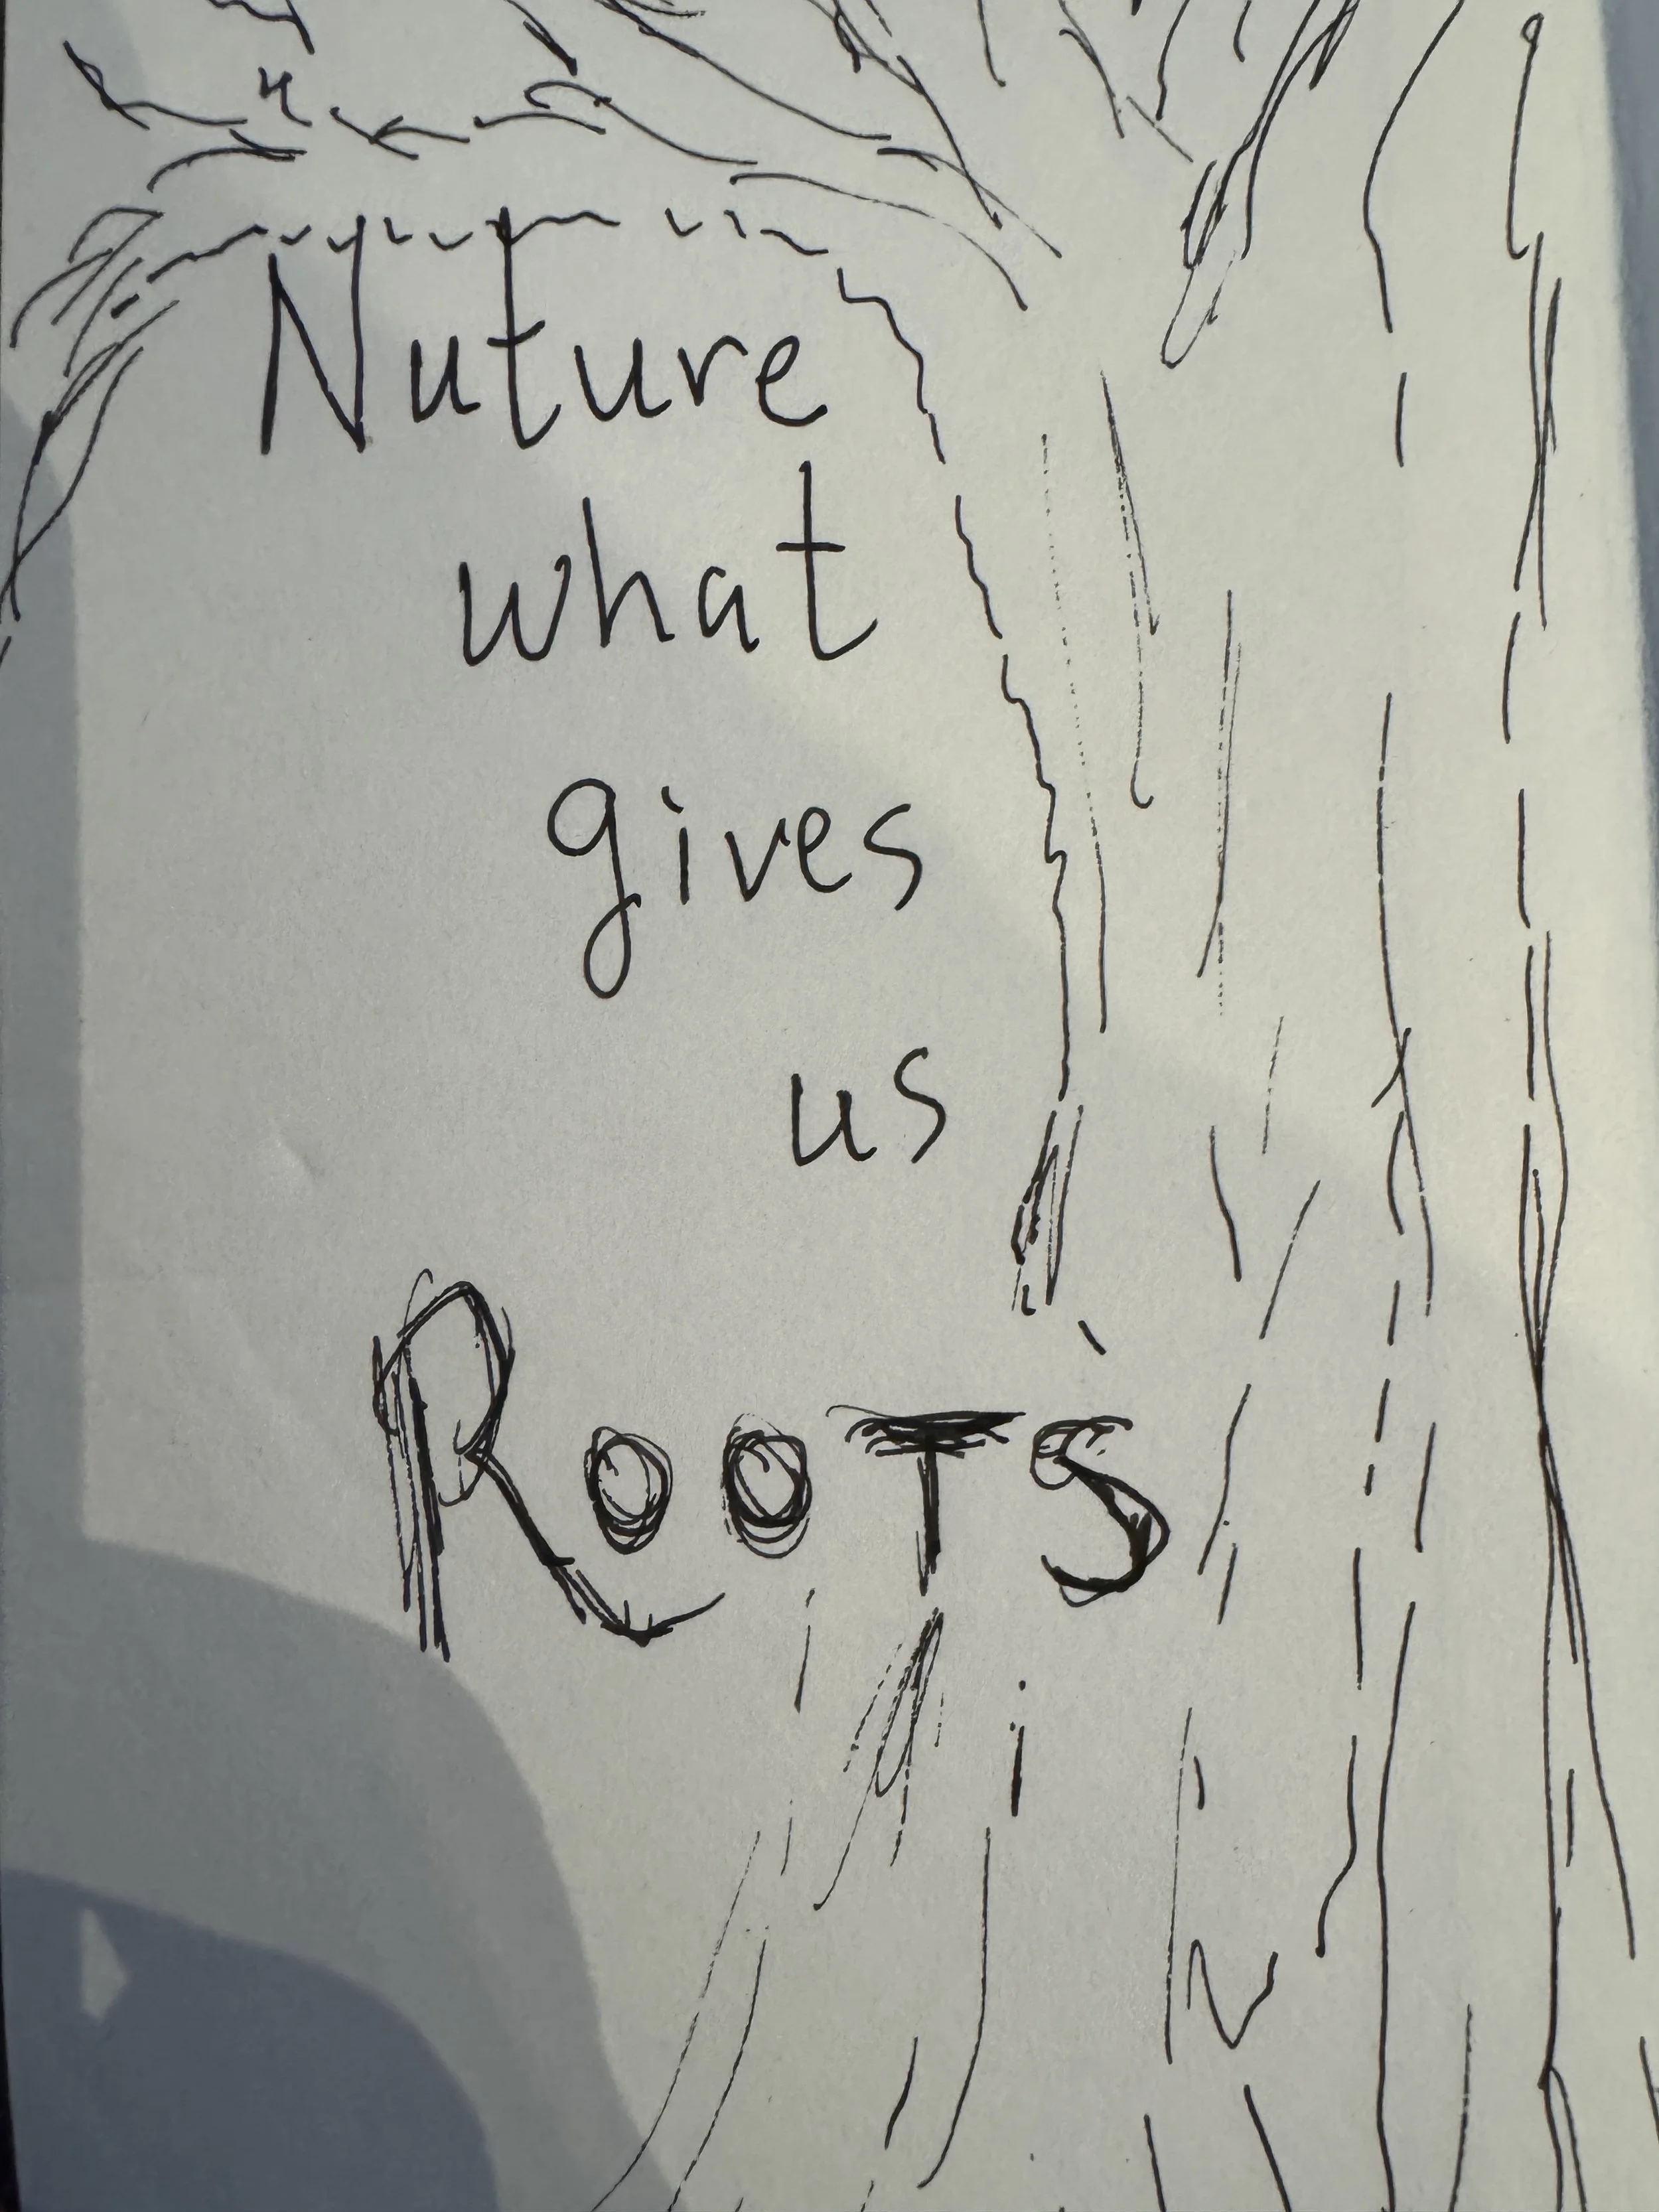 Nuture
what
gives
us
ROOTS